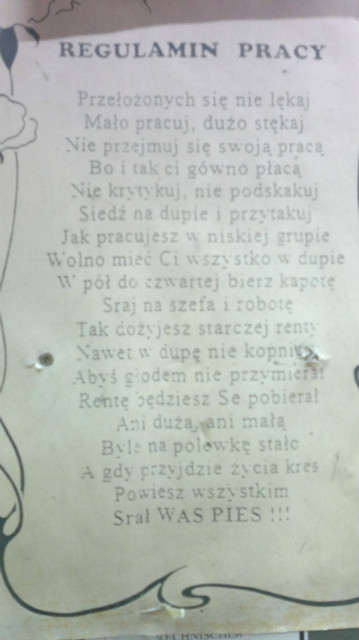 REGULAMIN PRACY
Przełożonych się nie lękaj
Mało pracuj, dużo stękaj
Nie przejmuj się swoją pracą
Bo i tak ci gówno płacą
Nie krytykuj, nie podskakuj
Siedź na dupie i przytakuj
Jak pracujesz w niskiej grupie
Wolno mieć Ci wszystko w dupie
W pół do czwartej bierz kapotę
Sraj na szefa i robotę
Tak dożyjesz starczej renty
Nawet w dupę nie
Abyś głodem nie przymierał
Rentę będziesz Se pobierał
Ani dużą, ani małą
Byle na polówkę stało
A gdy przyjdzie życia kres
Powiesz wszystkim
Srał WAS PIES !!!
TECHNISCHER